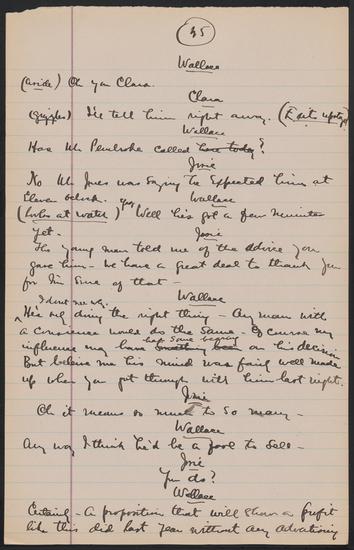 35
Wallace
(aside) Oh you Clara.
Clara
(giggles) I'll tell him right away. (Exit upstage)
Wallace
Has Mr Pembroke called here today?
Josie
No Mr Jones was saying he expected him at
eleven oclock. Wallace
(looks at watch) Well he's got a few minutes
yet - Josie
His young man told me of the advice you
gave him - We have a great deal to thank you
for I'm sure of that -
Wallace
He's doing the right thing - Any man with
a conscience would do the same - Of course my
had some bearing
influence may have something been on his decision
But believe me his mind was fairly well made
up when you got through with him last night.
Josie
Oh it means so much to so many -
Wallace
Any way I think he'd be a fool to sell -
Josie
You do?
Wallace
Certainly - A proposition that will show a profit
like this did last year without any advertising